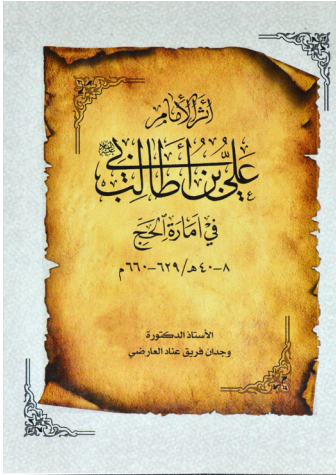 أثر الإمام
علي بن أبي طالب
في امارة الحج
٨-٤٠هـ/٦٢٩-٦٦٠م
الأستاذ الدكتورة
وجدان فريق عناد العارضي